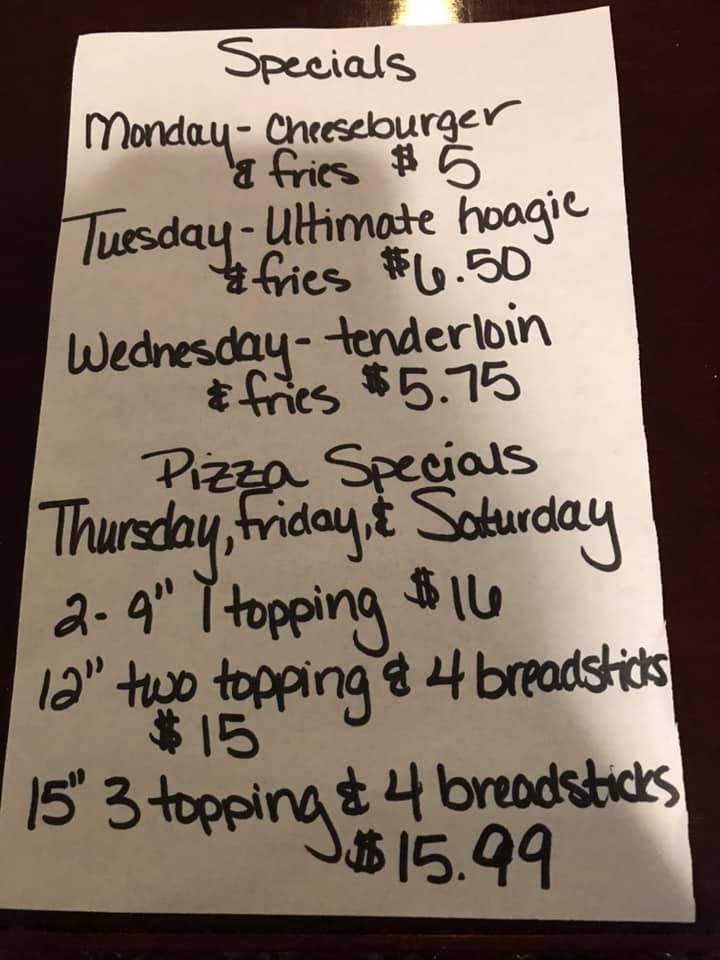 Specials
Monday- Cheeseburger
& fries $5
Tuesday- Ultimate hoagie
& fries $6.50
Wednesday- tenderloin
& fries $5.75
Pizza Specials
Thursday, Friday, & Saturday
2- 9" 1 topping $16
12" two topping & 4 breadsticks
$15
15" 3 topping & 4 breadsticks
$15.99